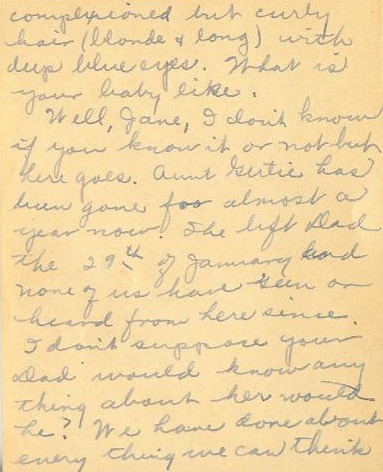 complexioned but curly
hair (blonde & long) with
deep blue eyes. What is
your baby like.
Well, Jane, I don't know
if you know it or not but
here goes. Aunt Gertie has
been gone for almost a
year now. She left Dad
the 29th of January and
none of us have seen or
heard from here since.
I don't suppose your
Dad would know any
thing about her would
he? We have done about
every thing we can think